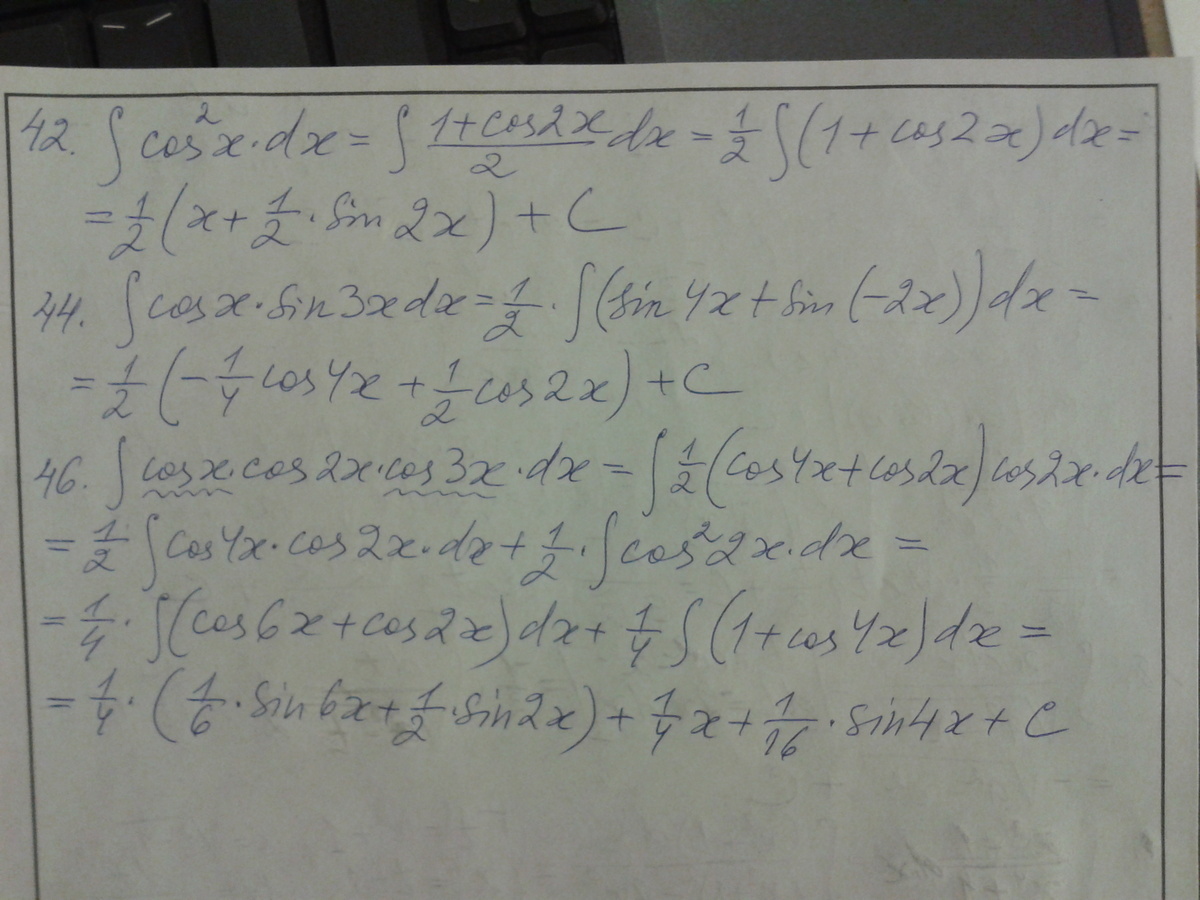 42. ∫ cos²x·dx = ∫ (1+cos2x)/2 dx = 1/2 ∫(1+cos2x)dx =
= 1/2 (x + 1/2 · sin 2x) + C
44. ∫ cosx·sin3xdx = 1/2 · ∫(sin4x + sin(-2x))dx =
= 1/2 (-1/4 cos4x + 1/2 cos2x) + C
46. ∫ cosx·cos2x·cos3x·dx = ∫ 1/2 (cos4x+cos2x)cos2x·dx =
= 1/2 ∫cos4x·cos2x·dx + 1/2 · ∫cos²2x·dx =
= 1/4 · ∫(cos6x+cos2x)dx + 1/4 ∫(1+cos4x)dx =
= 1/4 · (1/6 · sin6x + 1/2 · sin2x) + 1/4 x + 1/16 · sin4x + C